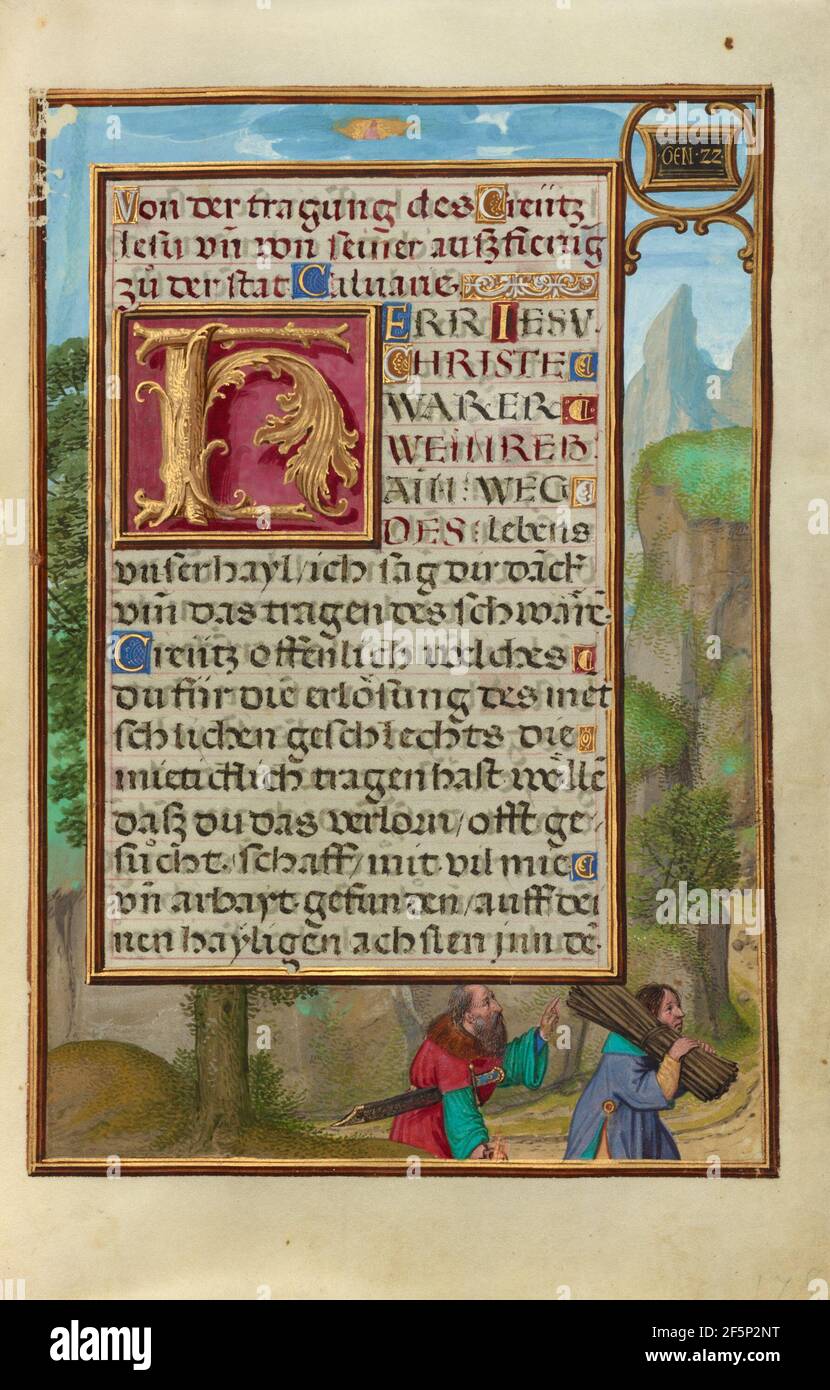 GEN · 22
Von der tragung des Creütz
Iesu vn̄ von seiner auszfierūg
zů der stat Caluarie.
HERR IESV.
CHRISTE
WARER
WEINREB
AIN WEG
DES : lebens
vnser hayl / ich sag dir dāck
vm̄ das tragen des schwārē.
Creütz offenlich welches
du für die erlösung des mēt
schlichen geschlechts die
mieticklich tragen hast wöllē
dasz du das verlorn / offt ge /
sůcht. schaff / mit vil mie
vn̄ arbayt gefunden / auff dei
nen hayligen achslen jnn dē.
alamy
Image ID: 2F5P2NT
www.alamy.com